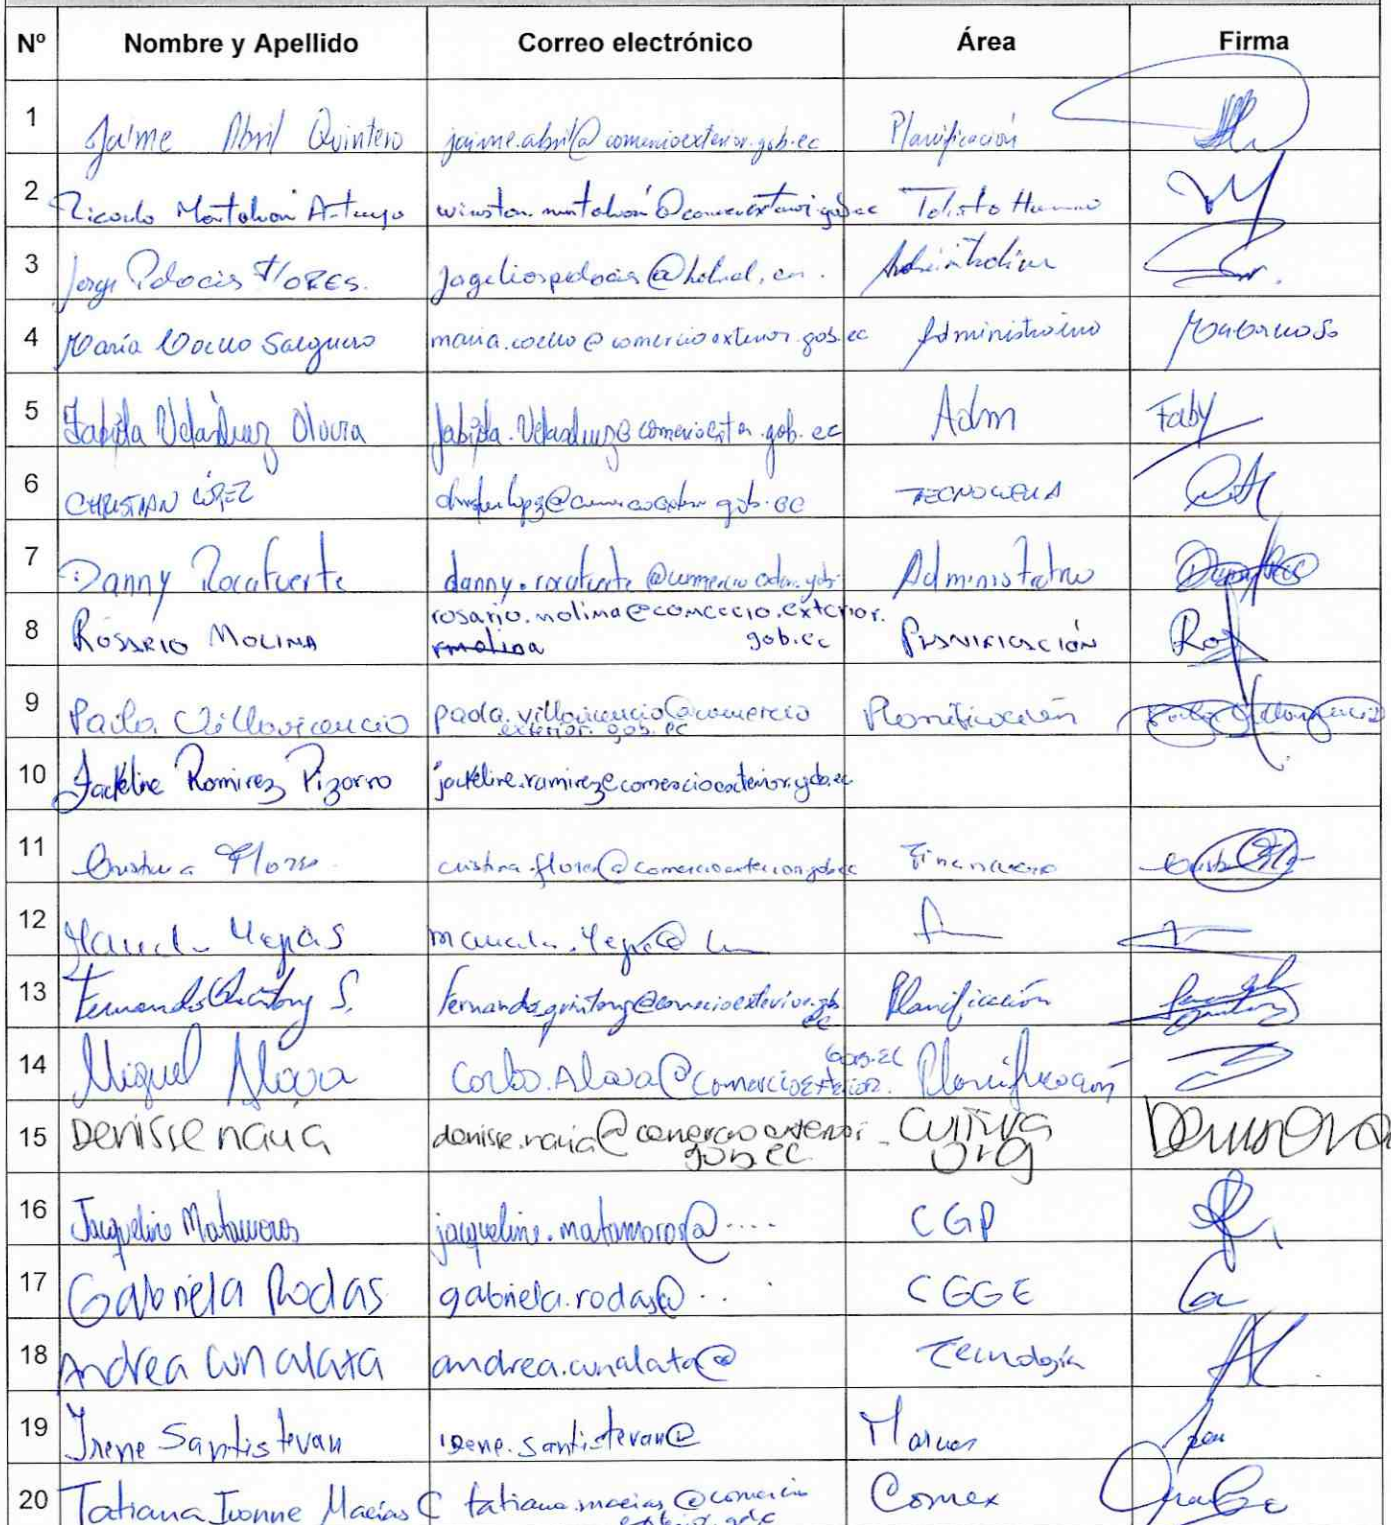 Nº Nombre y Apellido Correo electrónico Área Firma
1 Jaime Abril Quintero jaime.abril@comercioexterior.gob.ec Planificación
2 Ricardo Montalvan Talento Humano
3 Jorge FLORES. Administrativo
4 María Coello Salguero maria.coello@comercioexterior.gob.ec Administrativo
5 Fabiola Velasquez Olvera fabiola.Velasquez@comercioexterior.gob.ec Adm Faby
6 CHRISTIAN LÓPEZ TECNOLOGIA
7 Danny Rocafuerte danny.rocafuerte@comercioexterior.gob. Administrativo
8 ROSARIO MOLINA rosario.molina@comercio.exterior. PLANIFICACIÓN Ros
rmolina gob.ec
9 Paola Villavicencio paola.villavicencio@comercio Planificación
exterior.gob.ec
10 Jackeline Ramirez Pizarro jackeline.ramirez@comercioexterior.gob.ec
11 Cristina Flores cristina.flores@comercioexterior.gob.ec Financiero
12 Yepas
13 Fernando Quintong S. Fernando.quintong@comercioexterior.gob. Planificación
ec
14 Miguel Alava Carlos.Alava@comercioexterior. Gob.EC Planificación
15 Denisse naula denisse.naula@comercioexterior Cultura
gob.ec org
16 Jacqueline Matamoros jacqueline.matamoros@.... CGP
17 Gabriela Rodas gabriela.rodas@.. CGGE
18 Andrea Cunalata andrea.cunalata@ Tecnología
19 Irene Santistevan irene.santistevan@
20 Tatiana Ivonne Macías C tatiana.macias@comercio Comex
exterior.gob.ec